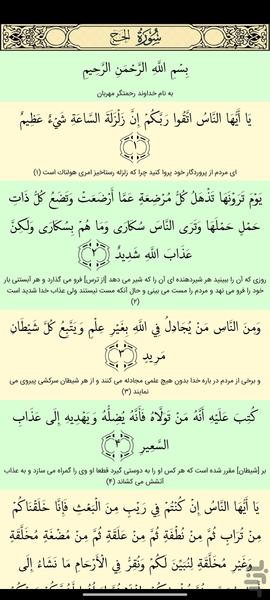 سُورَةُ الحَجّ
بِسْمِ اللَّهِ الرَّحْمَنِ الرَّحِيمِ
به نام خداوند رحمتگر مهربان
يَا أَيُّهَا النَّاسُ اتَّقُوا رَبَّكُمْ إِنَّ زَلْزَلَةَ السَّاعَةِ شَيْءٌ عَظِيمٌ
﴿١﴾
اى مردم از پروردگار خود پروا كنيد چرا كه زلزله رستاخيز امرى هولناك است (۱)
يَوْمَ تَرَوْنَهَا تَذْهَلُ كُلُّ مُرْضِعَةٍ عَمَّا أَرْضَعَتْ وَتَضَعُ كُلُّ ذَاتِ
حَمْلٍ حَمْلَهَا وَتَرَى النَّاسَ سُكَارَى وَمَا هُمْ بِسُكَارَى وَلَكِنَّ
عَذَابَ اللَّهِ شَدِيدٌ ﴿٢﴾
روزى كه آن را ببينيد هر شيردهنده اى آن را كه شير مى دهد [از ترس] فرو مى گذارد و هر آبستنى بار
خود را فرو مى نهد و مردم را مست مى بينى و حال آنكه مست نيستند ولى عذاب خدا شديد است
(۲)
وَمِنَ النَّاسِ مَنْ يُجَادِلُ فِي اللَّهِ بِغَيْرِ عِلْمٍ وَيَتَّبِعُ كُلَّ شَيْطَانٍ
مَرِيدٍ ﴿٣﴾
و برخى از مردم در باره خدا بدون هيچ علمى مجادله مى كنند و از هر شيطان سركشى پيروى مى
نمايند (۳)
كُتِبَ عَلَيْهِ أَنَّهُ مَنْ تَوَلَّاهُ فَأَنَّهُ يُضِلُّهُ وَيَهْدِيهِ إِلَى عَذَابِ
السَّعِيرِ ﴿٤﴾
بر [شيطان] مقرر شده است كه هر كس او را به دوستى گيرد قطعا او وى را گمراه مى سازد و به عذاب
آتشش مى كشاند (۴)
يَا أَيُّهَا النَّاسُ إِنْ كُنْتُمْ فِي رَيْبٍ مِنَ الْبَعْثِ فَإِنَّا خَلَقْنَاكُمْ
مِنْ تُرَابٍ ثُمَّ مِنْ نُطْفَةٍ ثُمَّ مِنْ عَلَقَةٍ ثُمَّ مِنْ مُضْغَةٍ مُخَلَّقَةٍ
وَغَيْرِ مُخَلَّقَةٍ لِنُبَيِّنَ لَكُمْ وَنُقِرُّ فِي الْأَرْحَامِ مَا نَشَاءُ إِلَى